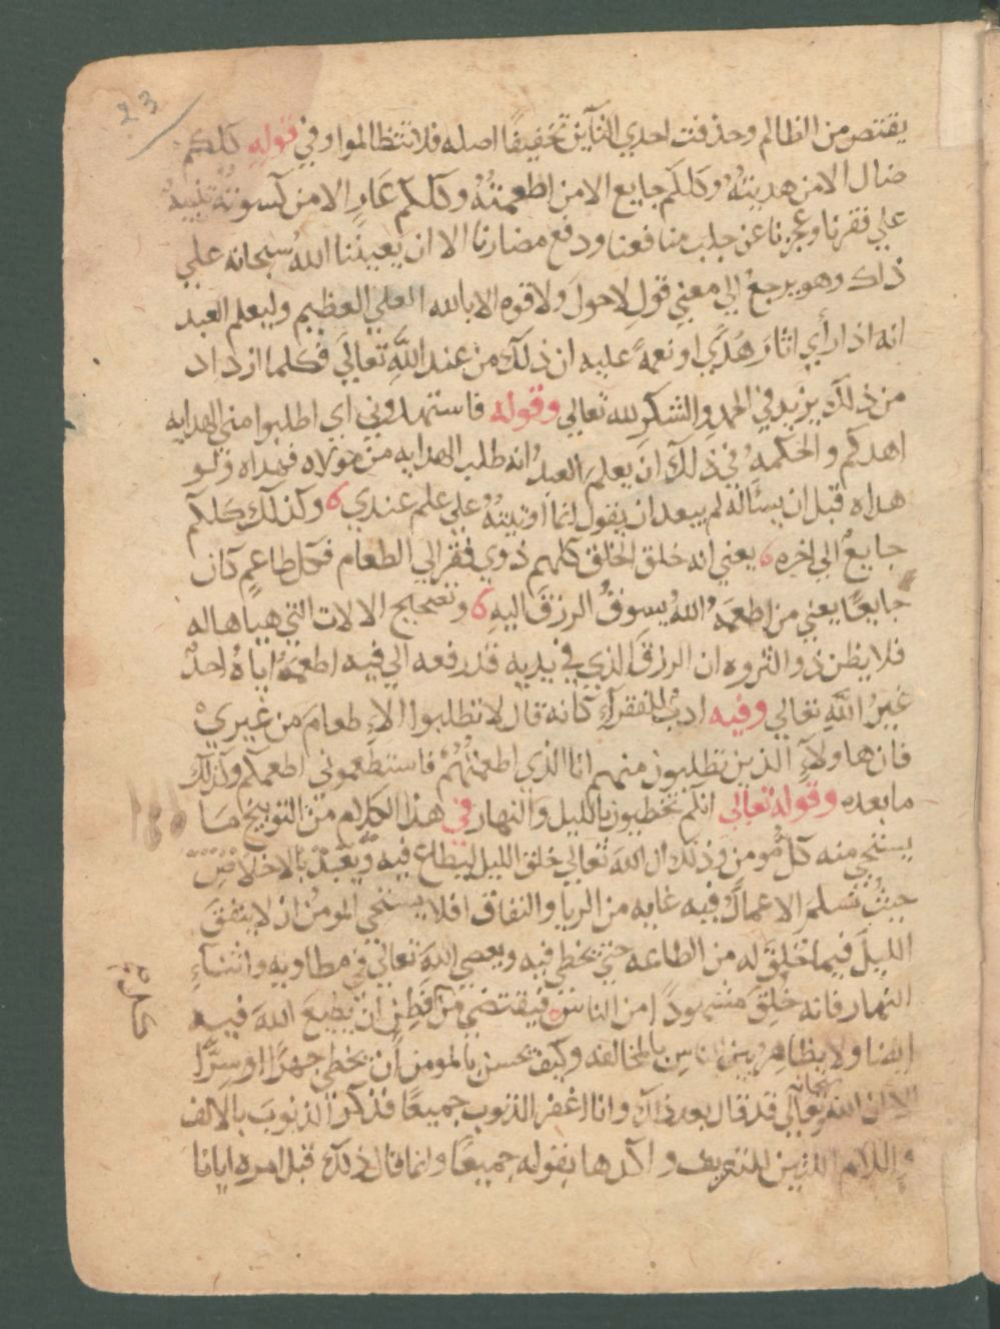 23
يقتص من الظالم وحذفت احدي التآين تخفيفًا اصله فلا تتظالموا وفي قوله كلكم
ضال الا من هديتهُ وكلكم جايع الا من اطعمتهُ وكلكم عَارٍ الا من كسوته تنبيهٌ
علي فقرنا وعجزنا عن جلب منافعنا ودفع مضارنا الا ان يعيننا اللهُ سبحانه علي
ذلك وهو يرجعُ الي معني قولِ لاحولَ ولا قوه الا بالله العلي العظيم وليعلم العبد
انه اذا رأي اثارَ هُدًي او نعمهً عليه ان ذلك من عند اللهِ تعاليَ فكلما ازداد
من ذلك يزيد في الحمدِ والشكرِ لله تعالي وقوله فاستهدوني اي اطلبوا مني الهدايه
اهدكم والحكمهُ في ذلك ان يعلمَ العبدُ انه طلب الهدايه من مولاه فهداه ولو
هداه قبل ان يسئاله لم يبعد ان يقول انما اوتيتهُ علي علم عندي وكذلك كلكم
جايعٌ الي اخره يعني انه خلق الخلق كلهم ذوي فقر الي الطعام فكل طاعمٍ كان
جايعًا يعني من اطعمَهُ اللهُ يسوقُ الرزقَ اليهِ وتصحيح الالات التي هياها له
فلا يظن ذو الثروه ان الرزقَ الذي في يديه قد رفعه الي فيه اطعمهُ اياهُ احدٌ
غيرُ اللهِ تعالي وفيه ادبٌ للفقرآءِ كانه قال لا تطلبوا الاطعامَ من غيريْ
فان هاولآءِ الذين تطلبون منهم انا الذي اطعمتُهُمْ فاستطعموني اطعمكم وكذلك
ما بعده وقوله تعالي انكم تخطيون بالليل والنهار في هذا الكلام من التوبيخ مَا
يستحي منه كلُّ مُومن وذلك ان اللهَ تعالي خلق الليل ليطاع فيه ويُعبَدُ بالاخلاصِ
حيثُ تسلمُ الاعمالُ فيه غايه من الريا والنفاق افلا يستحي المومنُ ان لا ينفقَ
الليلَ فيما خُلِقَ له من الطاعه حتي يخطي فيه ويعصي اللهَ تعالي في مطاويه واثناءِ
النهار فانه خُلِقَ مشهودًا من الناسِ فيقتضي من فَطِنٍ ان يطيعَ اللهَ فيه
ايضا ولا يظاهر بين الناسِ بالمخالفه وكيف يحسن بالمومن ان يخطي جهرًا او سِرًّا
لان الله سبحانه وتعالي قد قال بعد ذلك وانا اغفر الذنوبَ جميعًا فذكر الذنوبَ بالالف
واللام اللذين للتعريف واكدها بقوله جميعًا وانما قال ذلك قبل امره ايانا